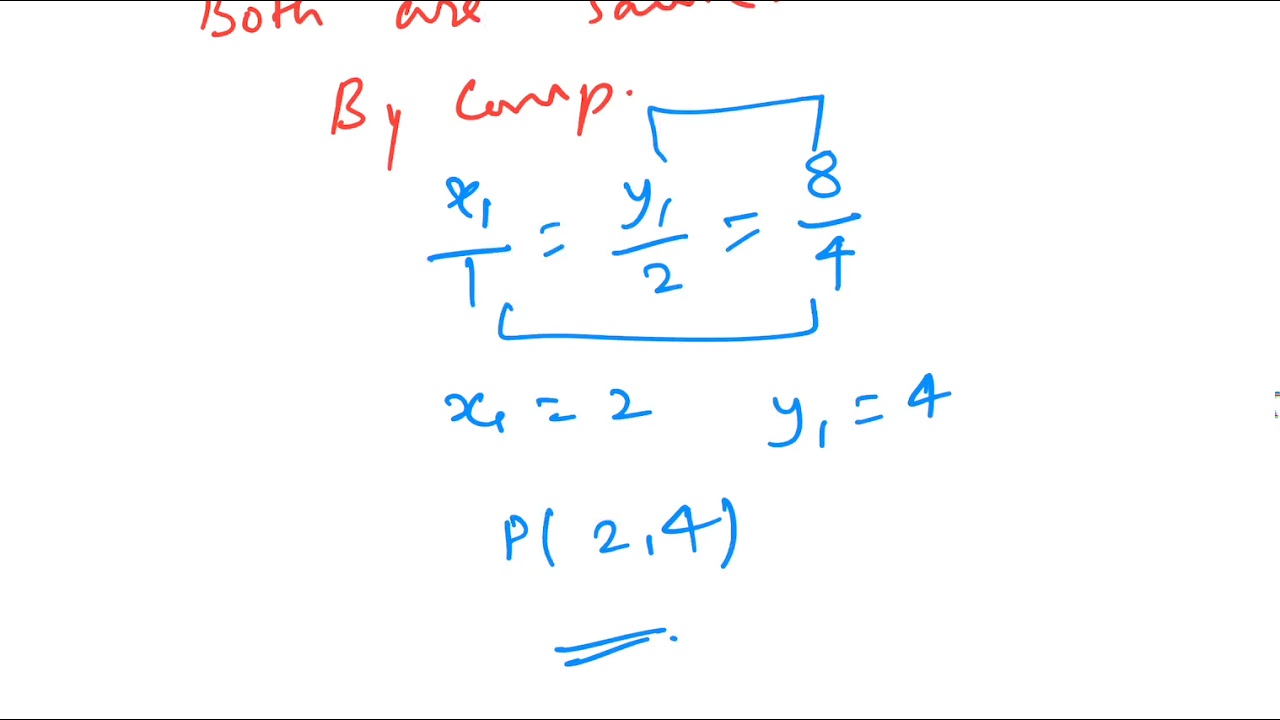 Both are same
By comp.
x₁/1 = y₁/2 = 8/4
x₁ = 2 y₁ = 4
P( 2,4)